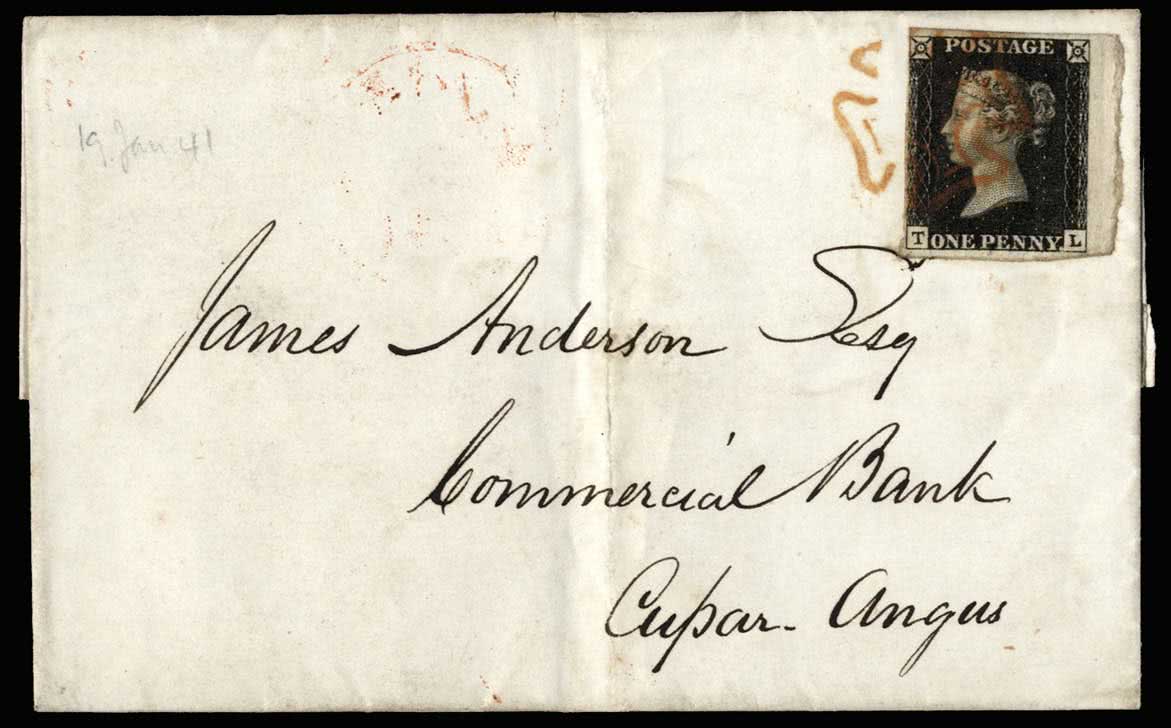 19 Jan 41
POSTAGE
T ONE PENNY L
James Anderson Esq
Commercial Bank
Cupar-Angus